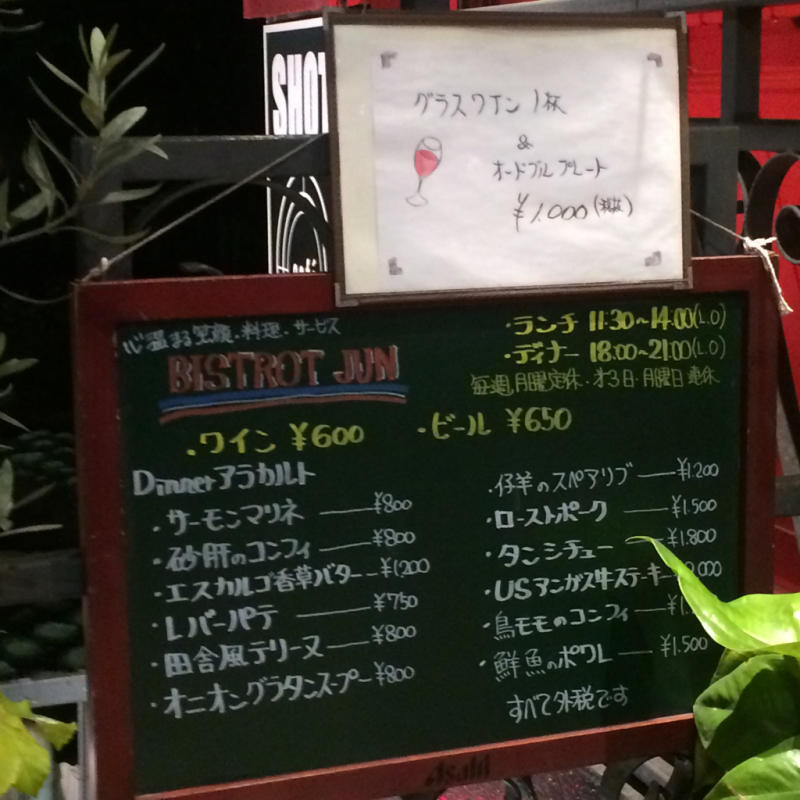 SHOT
グラスワイン 1杯
&
オードブルプレート
¥1.000
心温まる笑顔・料理・サービス
BISTROT JUN
・ランチ 11:30~14:00(L.O)
・ディナー 18:00~21:00(L.O)
毎週月曜定休・オ3日・月曜日連休
・ワイン ¥600
・ビール ¥650
Dinnerアラカルト
・サーモンマリネ ¥800
・砂肝のコンフィ ¥800
・エスカルゴ香草バター ¥1,200
・レバーパテ ¥750
・田舎風テリーヌ ¥800
・オニオングラタンスープ ¥800
・仔羊のスペアリブ ¥1.200
・ローストポーク ¥1.500
・タンシチュー ¥1.800
・USアンガス牛ステーキ
・鳥モモのコンフィ
・鮮魚のポワレ ¥1.500
すべて外税です
Asahi